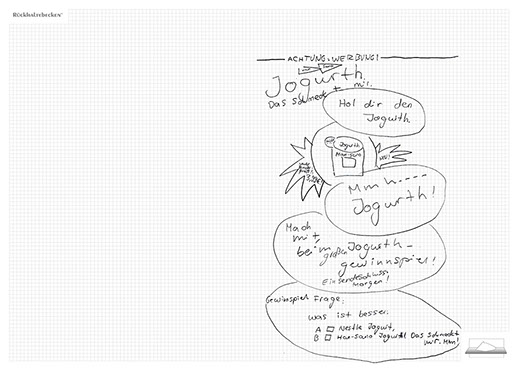 ACHTUNG: WERBUNG!
Jogurth
mir.
Das schmeckt
Hol dir den
Jogurth
Jogurth
Han-sano
NEU!
Mmh----
Jogurth!
Mach
mit,
beim
großen Jogurth-
gewinnspiel!
Einsendeschluss:
morgen!
Gewinnspiel Frage:
Was ist besser:
A Nestle Jogurt,
B Han-sano Jogurth! Das schmeckt
mir. Mm!